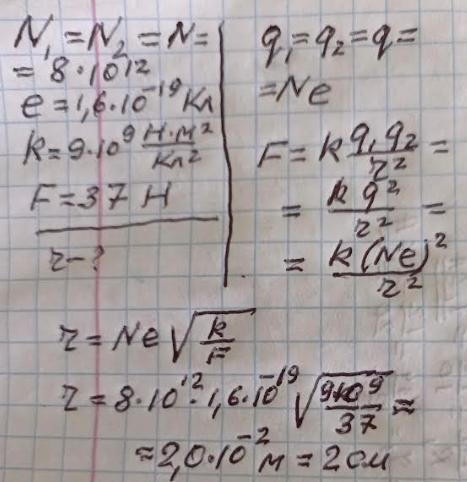 N₁ = N₂ = N =
= 8·10¹²
e = 1,6·10⁻¹⁹ Кл
k = 9·10⁹ Н·м²/Кл²
F = 37 Н
r - ?
q₁ = q₂ = q =
= Ne
F = k q₁q₂/r² =
= kq²/r² =
= k(Ne)²/r²
r = Ne√(k/F)
r = 8·10¹²·1,6·10⁻¹⁹ √(9·10⁹/37) ≈
≈ 2,0·10⁻² м = 2 см